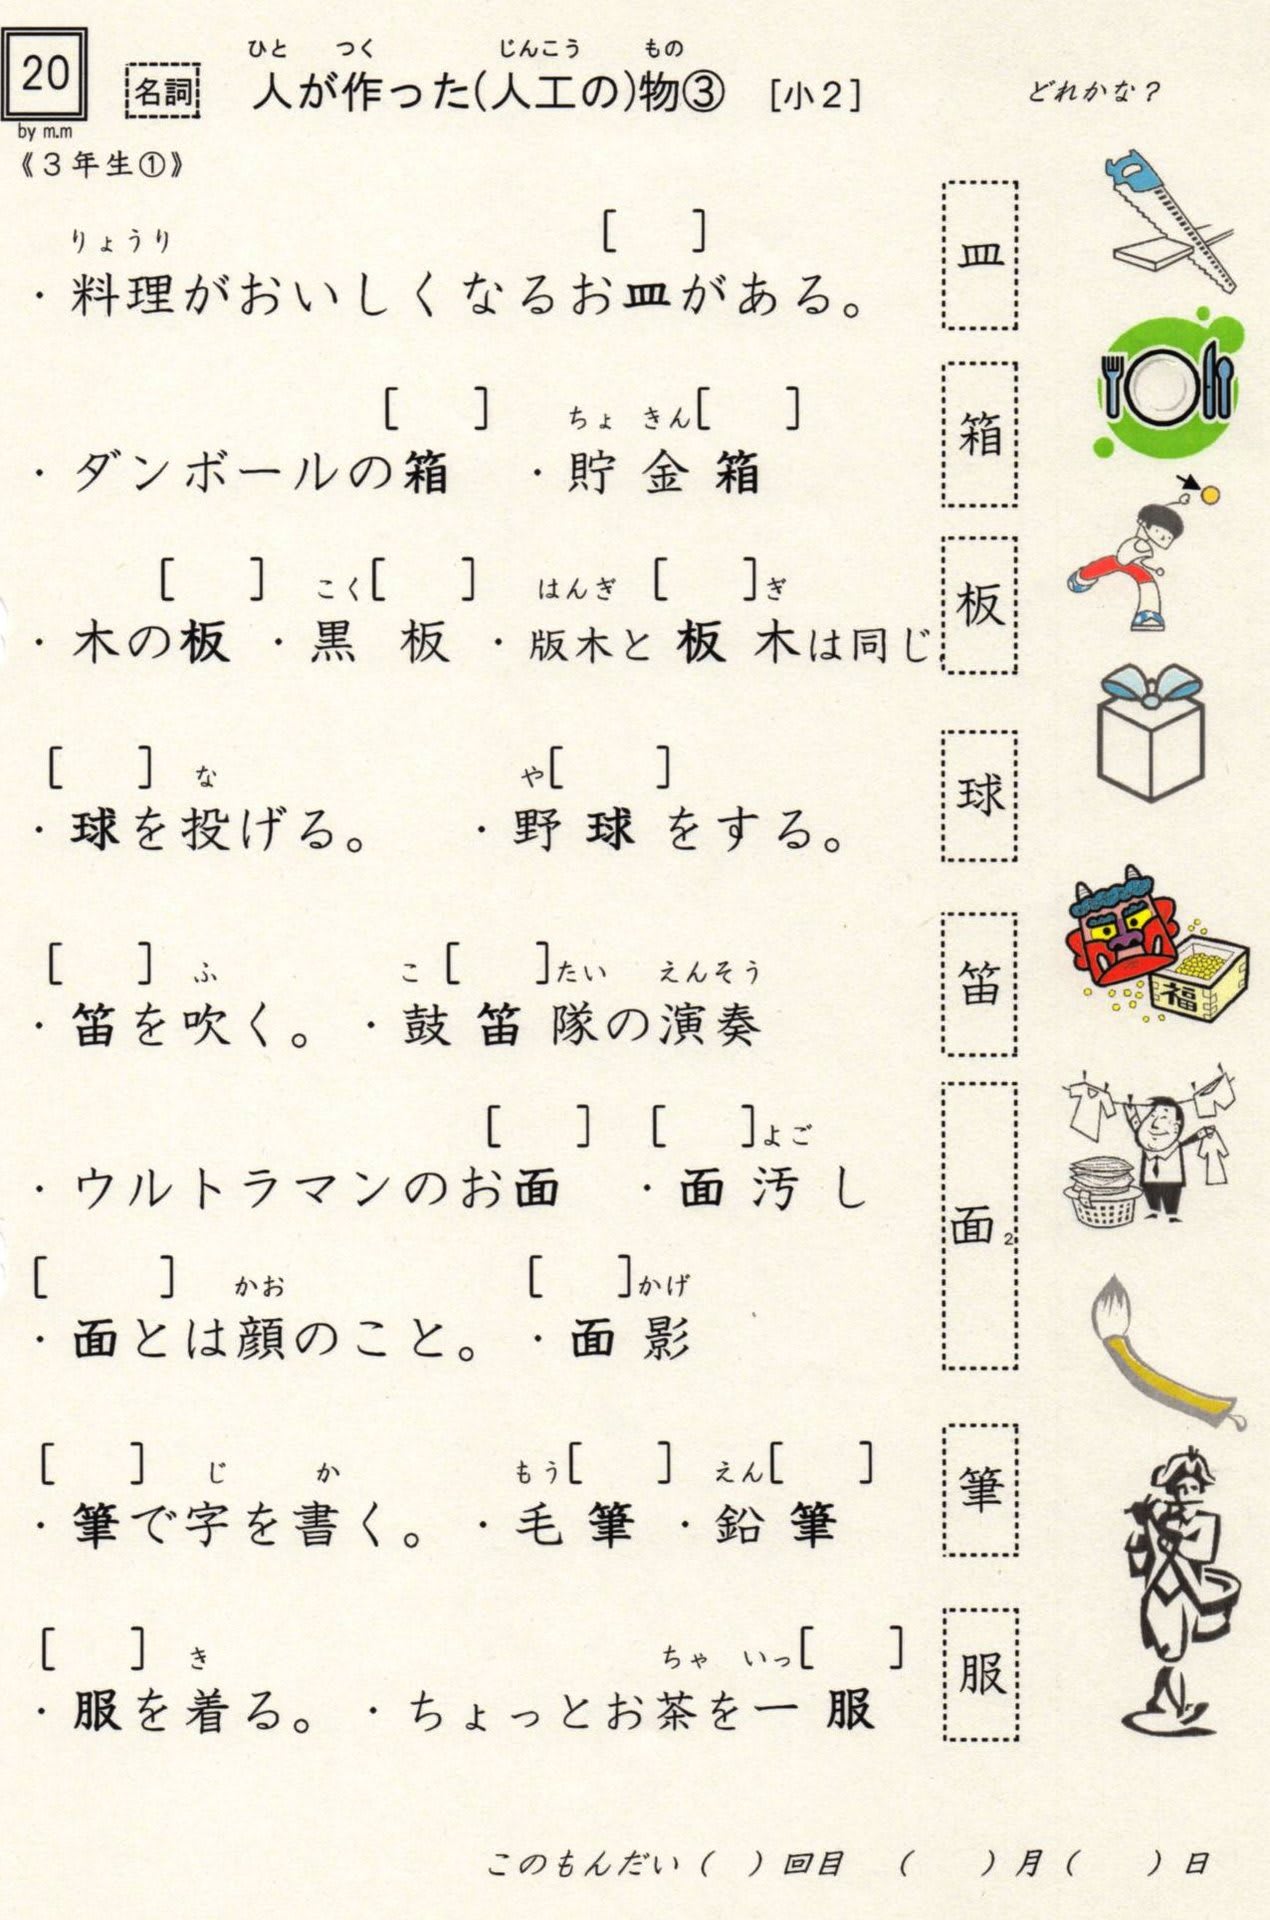 20 名詞 人が作った(人工の)物③ [小2] どれかな?
ひと つく じんこう もの
by m.m
《3年生①》
りょうり [ ]
・料理がおいしくなるお皿がある。
皿
[ ] ちょ きん[ ]
・ダンボールの箱 ・貯金箱
箱
[ ] こく[ ] はんぎ [ ]ぎ
・木の板 ・黒板 ・版木と板木は同じ
板
[ ] な や[ ]
・球を投げる。 ・野球をする。
球
[ ] ふ こ[ ]たい えんそう
・笛を吹く。 ・鼓笛隊の演奏
笛
[ ] [ ]よご
・ウルトラマンのお面 ・面汚し
面2
[ ] かお [ ]かげ
・面とは顔のこと。 ・面影
[ ] じ か もう[ ] えん[ ]
・筆で字を書く。 ・毛筆 ・鉛筆
筆
[ ] き ちゃ いっ[ ]
・服を着る。 ・ちょっとお茶を一服
服
福
このもんだい( )回目 ( )月( )日